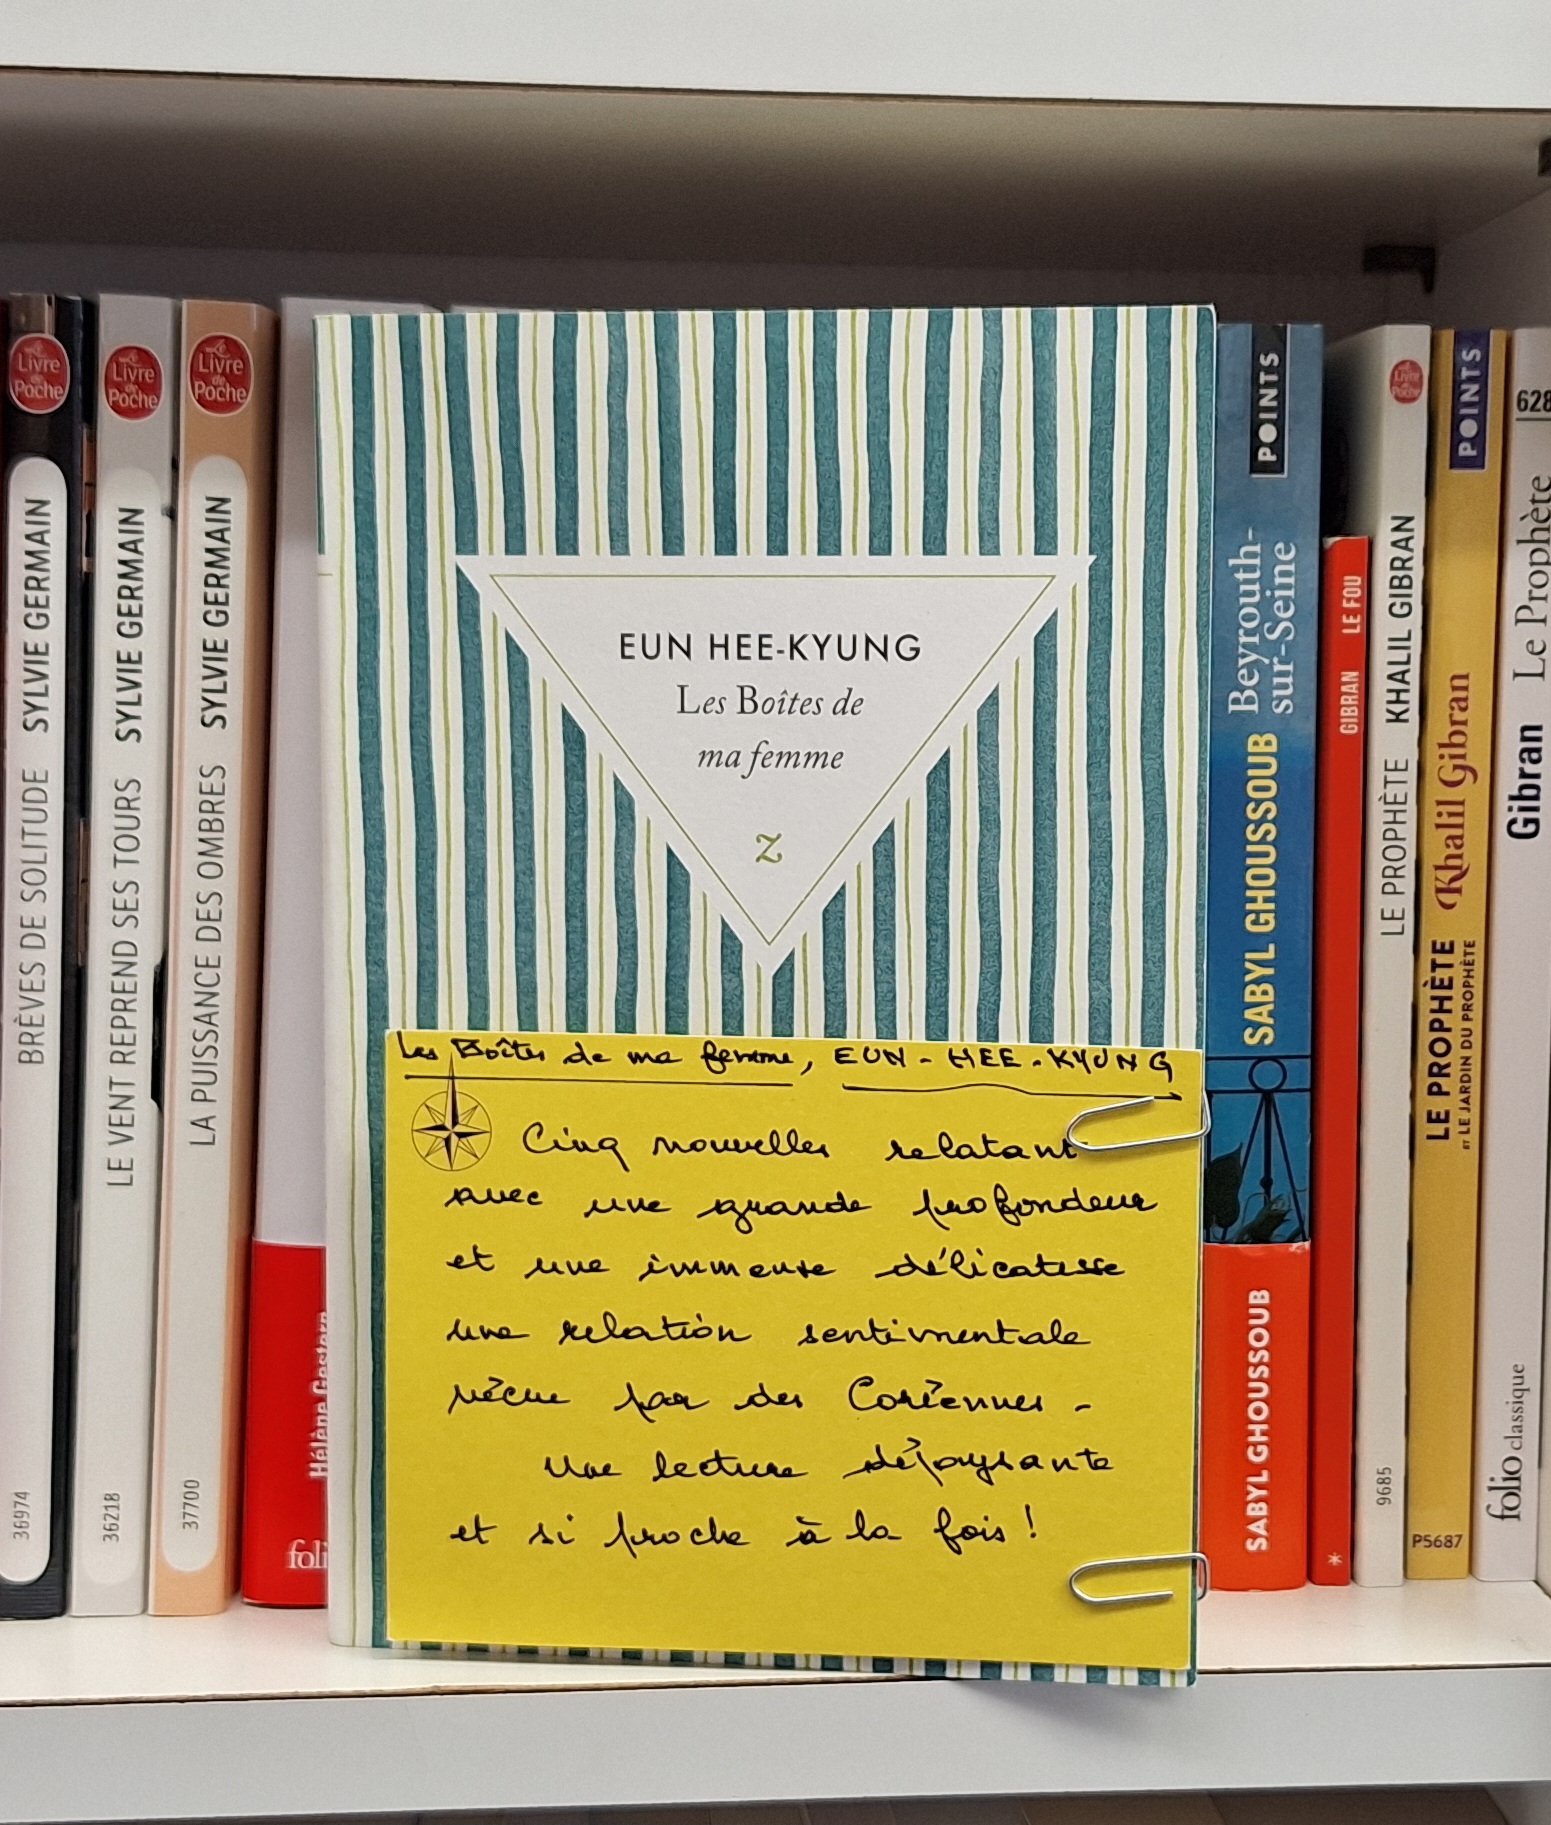 Le
Livre
de
Poche
SYLVIE GERMAIN
BRÈVES DE SOLITUDE
36974
Le
Livre
de
Poche
SYLVIE GERMAIN
LE VENT REPREND SES TOURS
36218
Le
Livre
de
Poche
SYLVIE GERMAIN
LA PUISSANCE DES OMBRES
37700
Hélène
foli
EUN HEE-KYUNG
Les Boîtes de
ma femme
Z
Les Boîtes de ma femme, EUN-HEE-KYUNG
Cinq nouvelles relatant
avec une grande profondeur
et une immense délicatesse
une relation sentimentale
vécue par des Coréennes.
Une lecture dépaysante
et si proche à la fois !
POINTS
Beyrouth-
sur-Seine
SABYL GHOUSSOUB
SABYL GHOUSSOUB
GIBRAN LE FOU
*
Le
Livre
de
Poche
LE PROPHÈTE KHALIL GIBRAN
9685
POINTS
Khalil Gibran
LE PROPHÈTE
ET LE JARDIN DU PROPHÈTE
P5687
628
Gibran Le Prophète
folio classique